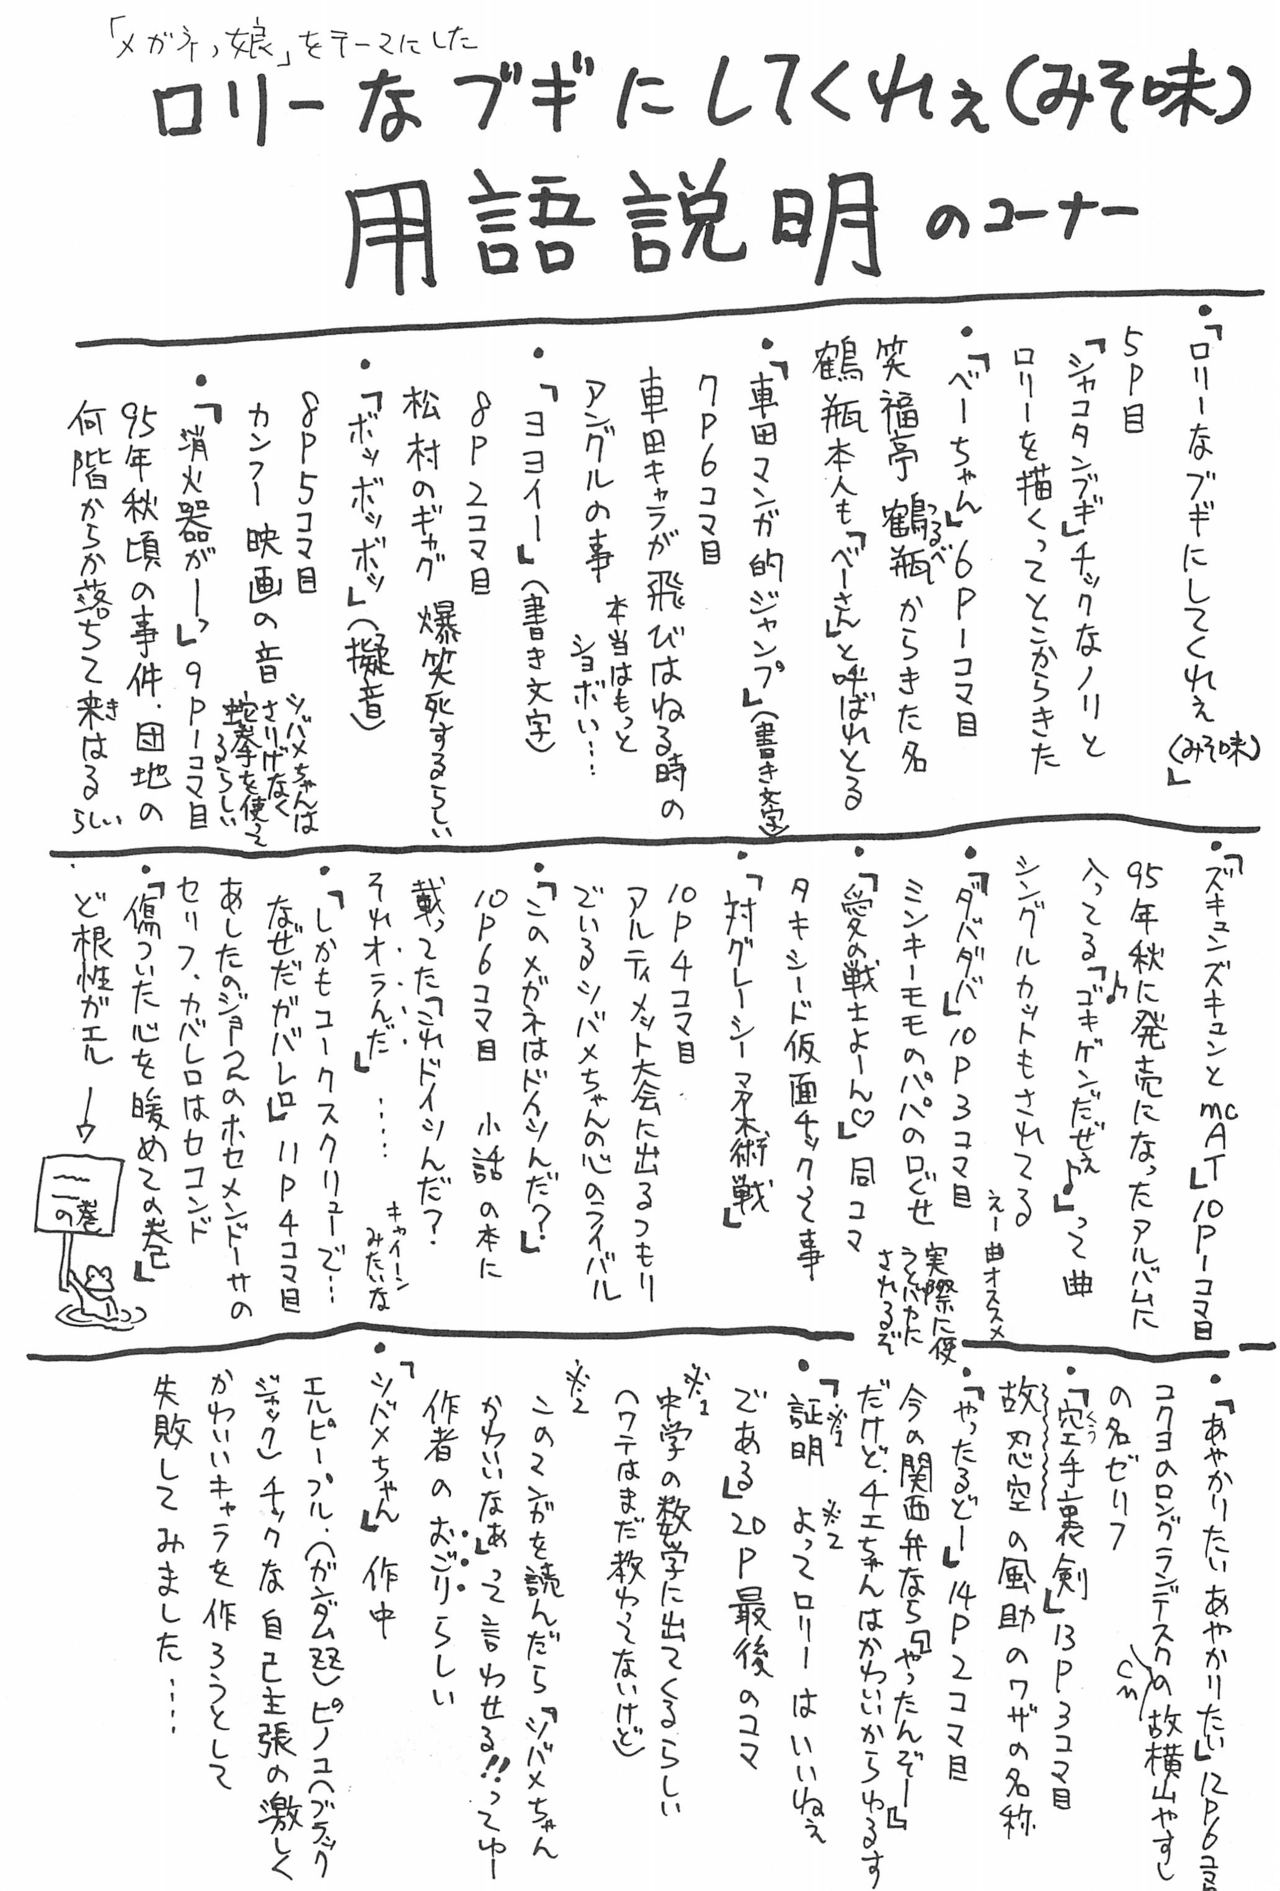 「メガネっ娘」をテーマにした
ロリーなブギにしてくれぇ(みそ味)
用語説明のコーナー
・「ロリーなブギにしてくれぇ(みそ味)」
5P目
「シャコタンブギ」チックなノリと
ロリーを描くってとこからきた
・「べーちゃん」6P1コマ目
笑福亭鶴瓶からきた名
つるべ
鶴瓶本人も「べーさん」と呼ばれとる
・「車田マンガ的ジャンプ」(書き文字)
7P6コマ目
車田キャラが飛びはねる時の
アングルの事
本当はもっと
ショボい…
・「ヨヨイー」(書き文字)
8P2コマ目
松村のギャグ 爆笑死するらしい
・「ボッボッボッ」(擬音)
8P5コマ目
カンフー映画の音
シバメちゃんは
さりげなく
蛇拳を使って
るらしい
・「消火器がーっ」9P1コマ目
95年秋頃の事件.団地の
何階からか落ちて来はるらしい
き
・「ズキュンズキュンとmcAT」10P1コマ目
95年秋に発売になったアルバムに
入ってる「ゴキゲンだぜぇ♪」って曲
シングルカットもされてる
えー曲オススメ
・「ダバダバ」10P3コマ目
ミンキーモモのパパの口ぐせ
実際に使
うとバカに
されるぞ
・「愛の戦士よーん♡」同コマ
タキシード仮面チックて事
・「対グレーシーマ木術戦」
10P4コマ目
アルティメット大会に出るつもり
でいるシバメちゃんの心のライバル
・「このメガネはドイツんだ?」
10P6コマ目 小話の本に
載ってた「これドイツんだ?
それオランだ」……
キャイーン
みたいな
・「しかもコークスクリューで…
なぜだガバレロ」11P4コマ目
あしたのジョー2のホセメンドーサの
セリフ.カバレロはセコンド
・「傷ついた心を暖めての巻」
ど根性ガエル→
の巻
・「あやかりたいあやかりたい」12P6コマ目
コクヨのロングランデスクの故横山やすし
CM
の名ゼリフ
・「空手裏剣」13P3コマ目
くう
故忍空の風助のワザの名称
・「やったるどー」14P2コマ目
今の関西弁なら「やったんぞー」
だけど.チエちゃんはかわいいからゆるす
・「証明 よってロリーはいいねぇ
※1
※2
である」20P最後のコマ
※1
中学の数学に出てくるらしい
(ワテはまだ教わってないけど)
※2
このマンガを読んだら「シバメちゃん
かわいいなぁ」って言わせる!!ってゆー
作者のおごりらしい
・「シバメちゃん」作中
エルピープル.(ガンダムZZ)ピノコ(ブラック
ジャック)チックな自己主張の激しく
かわいいキャラを作ろうとして
失敗してみました……